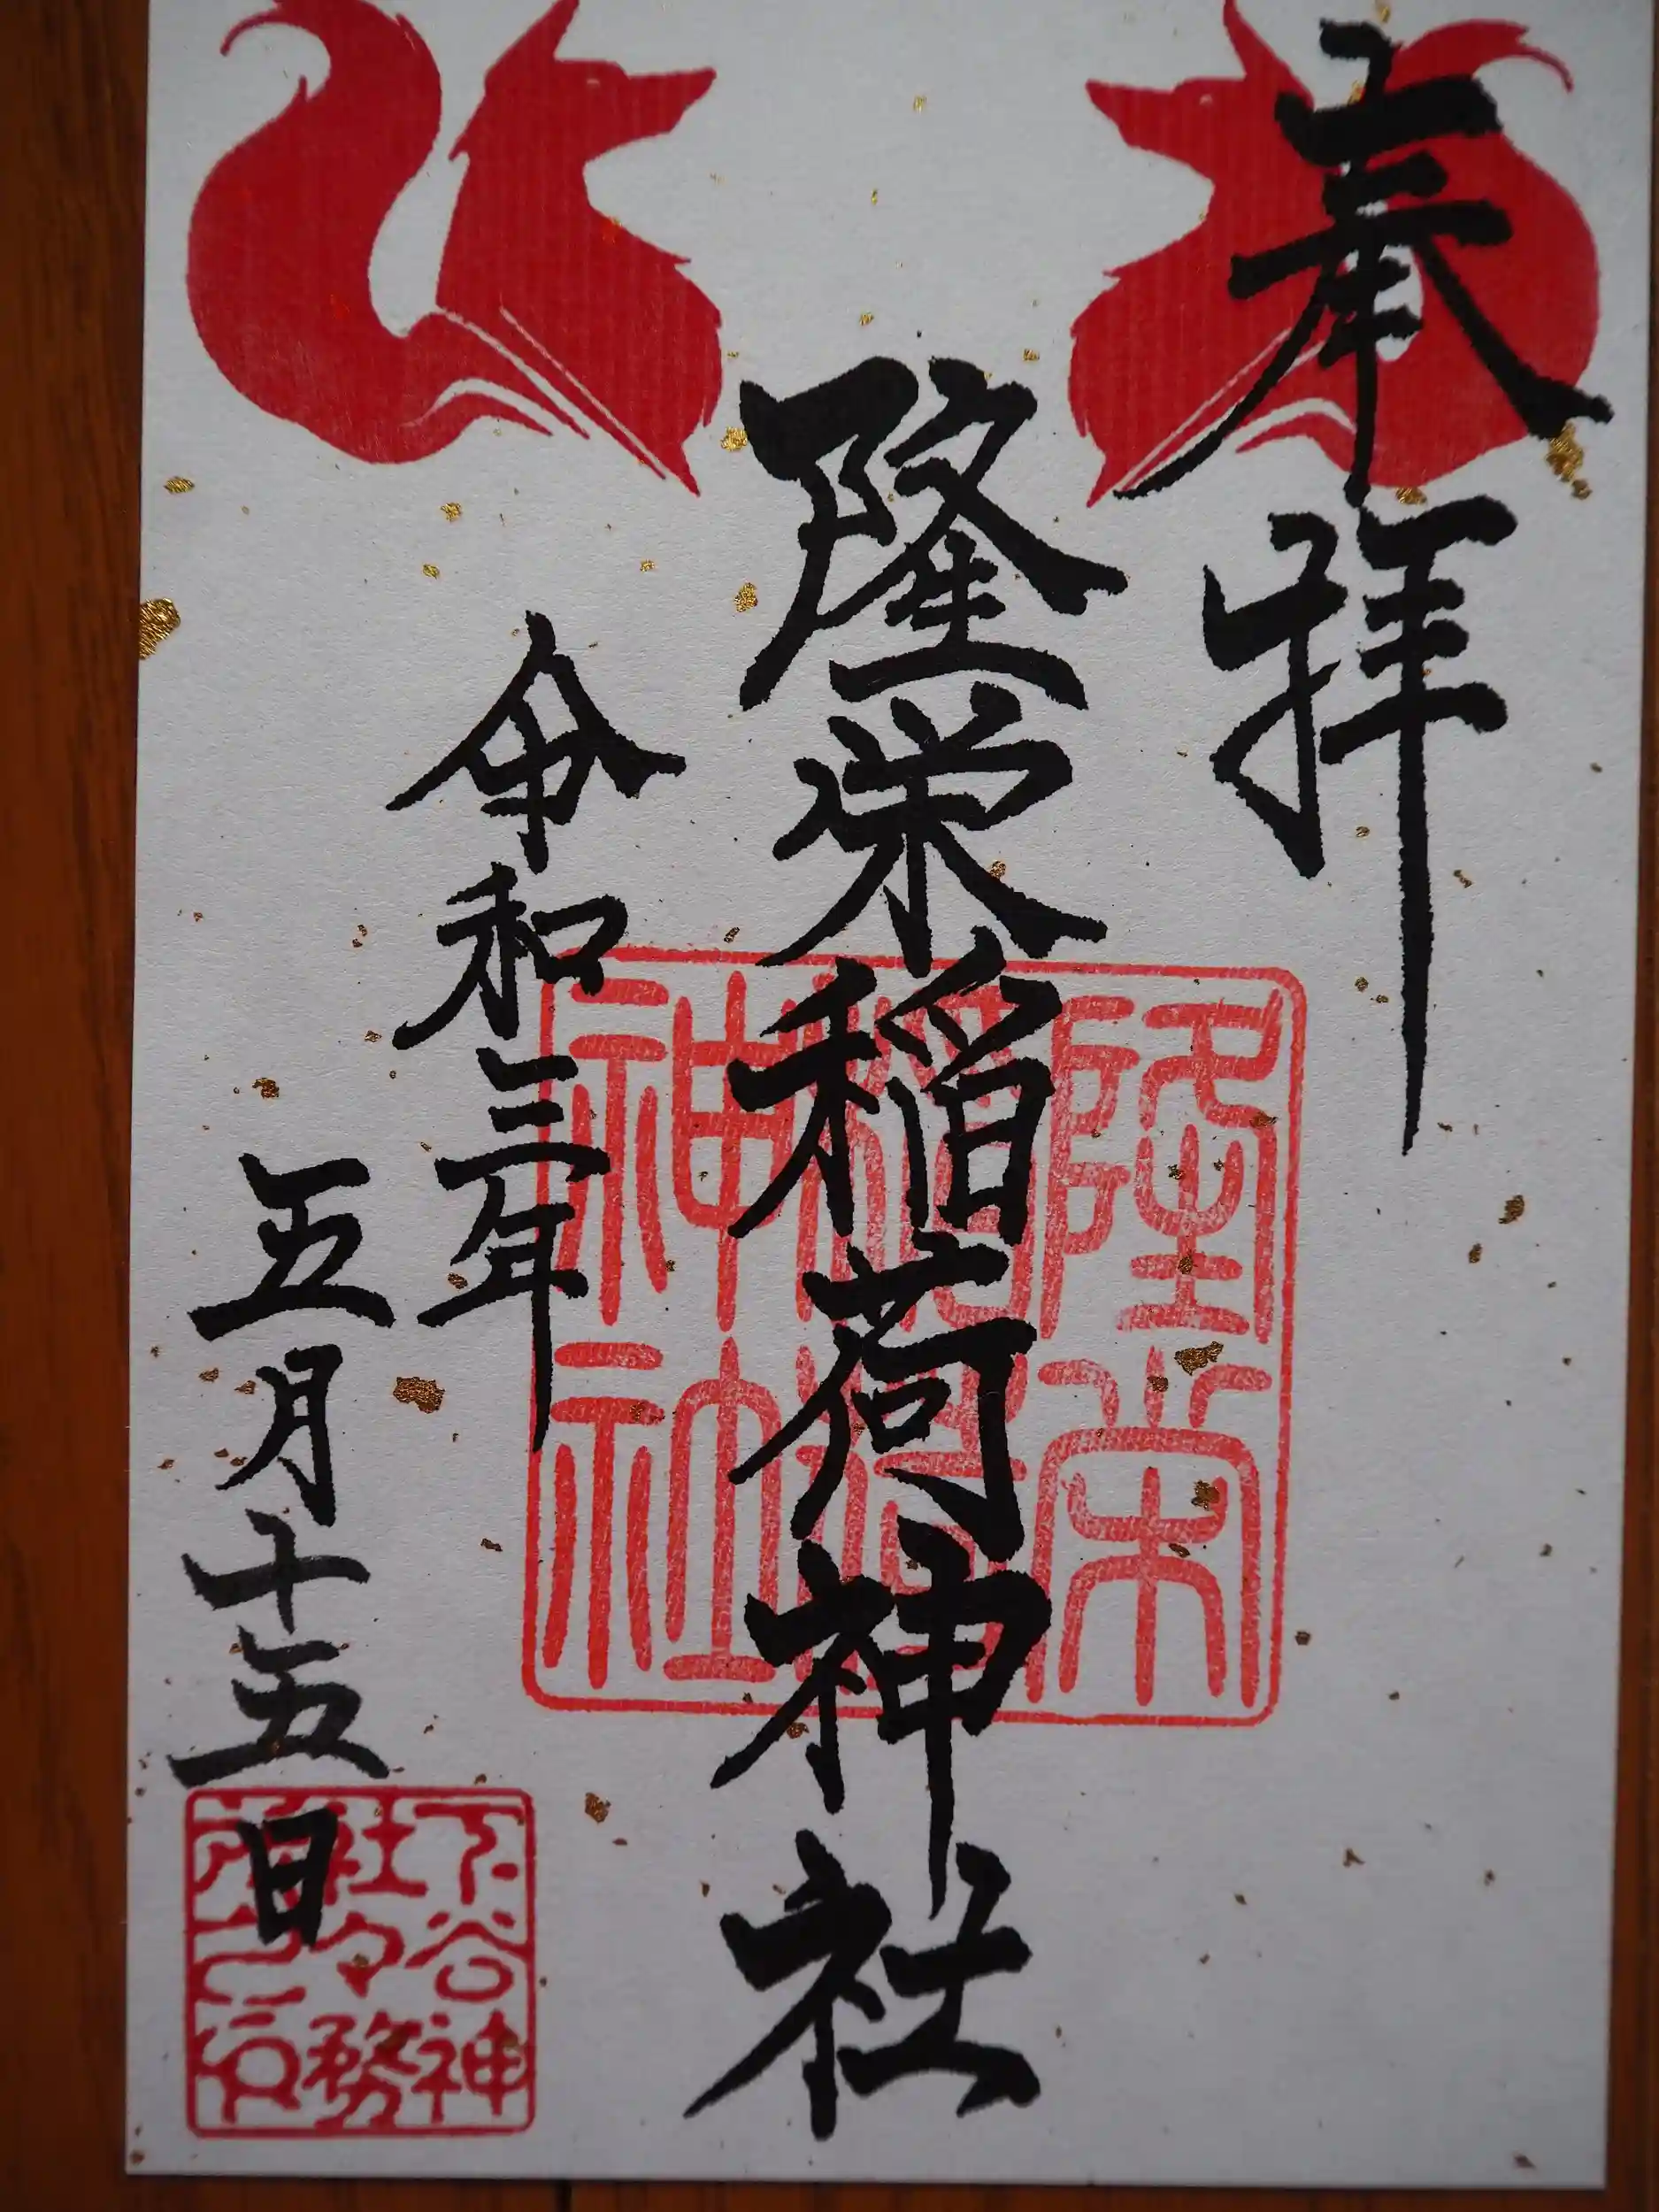 奉拝
隆栄稲荷神社
令和三年
五月十五日
隆栄
稲荷
神社
下谷神
社々務
所之印